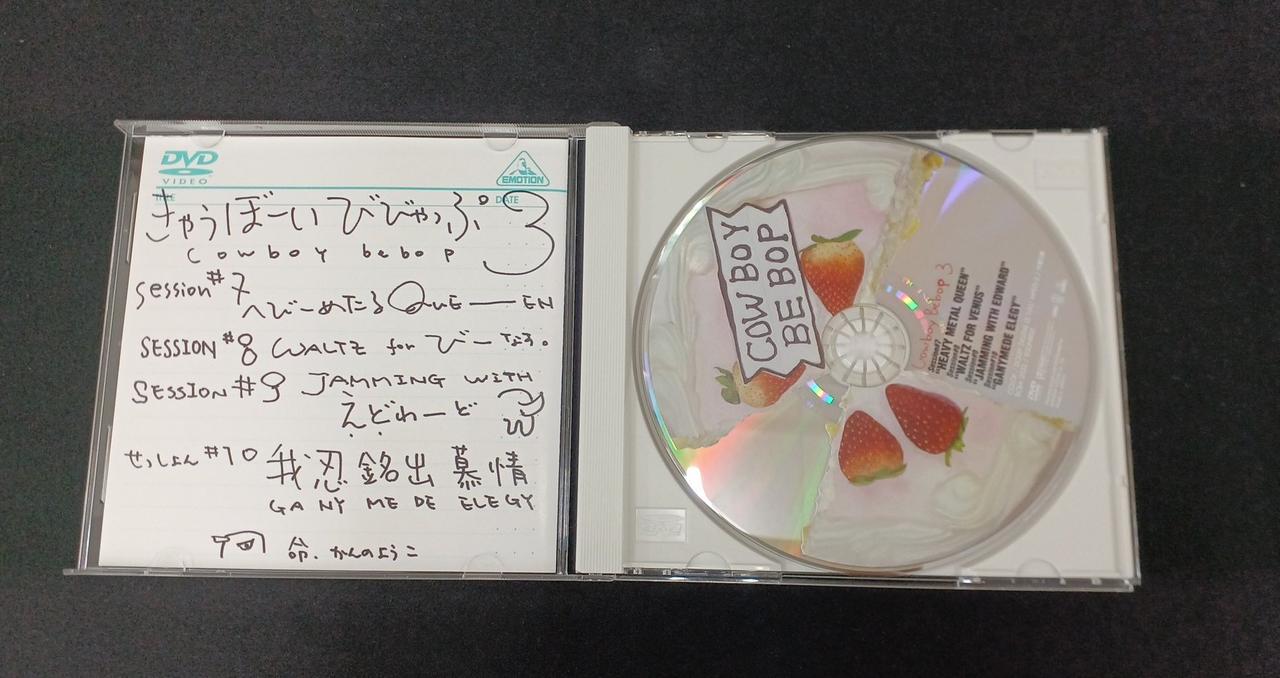 DVD
VIDEO
EMOTION
DATE
きゃうぼーいびびゃっぷ 3
cowboy bebop
Session #7
へびーめたる QuE — EN
SESSION #8 WALTZ for びーなす。
SESSION #9 JAMMING WITH
えどわーど
せっしょん #10 我忍銘出慕情
GA NY ME DE ELEGY
命. かんのようこ
COWBOY
BE BOP
Cowboy Bebop 3
Session#7
"HEAVY METAL QUEEN"
Session#8
"WALTZ FOR VENUS"
Session#9
"JAMMING WITH EDWARD"
Session#10
"GANYMEDE ELEGY"